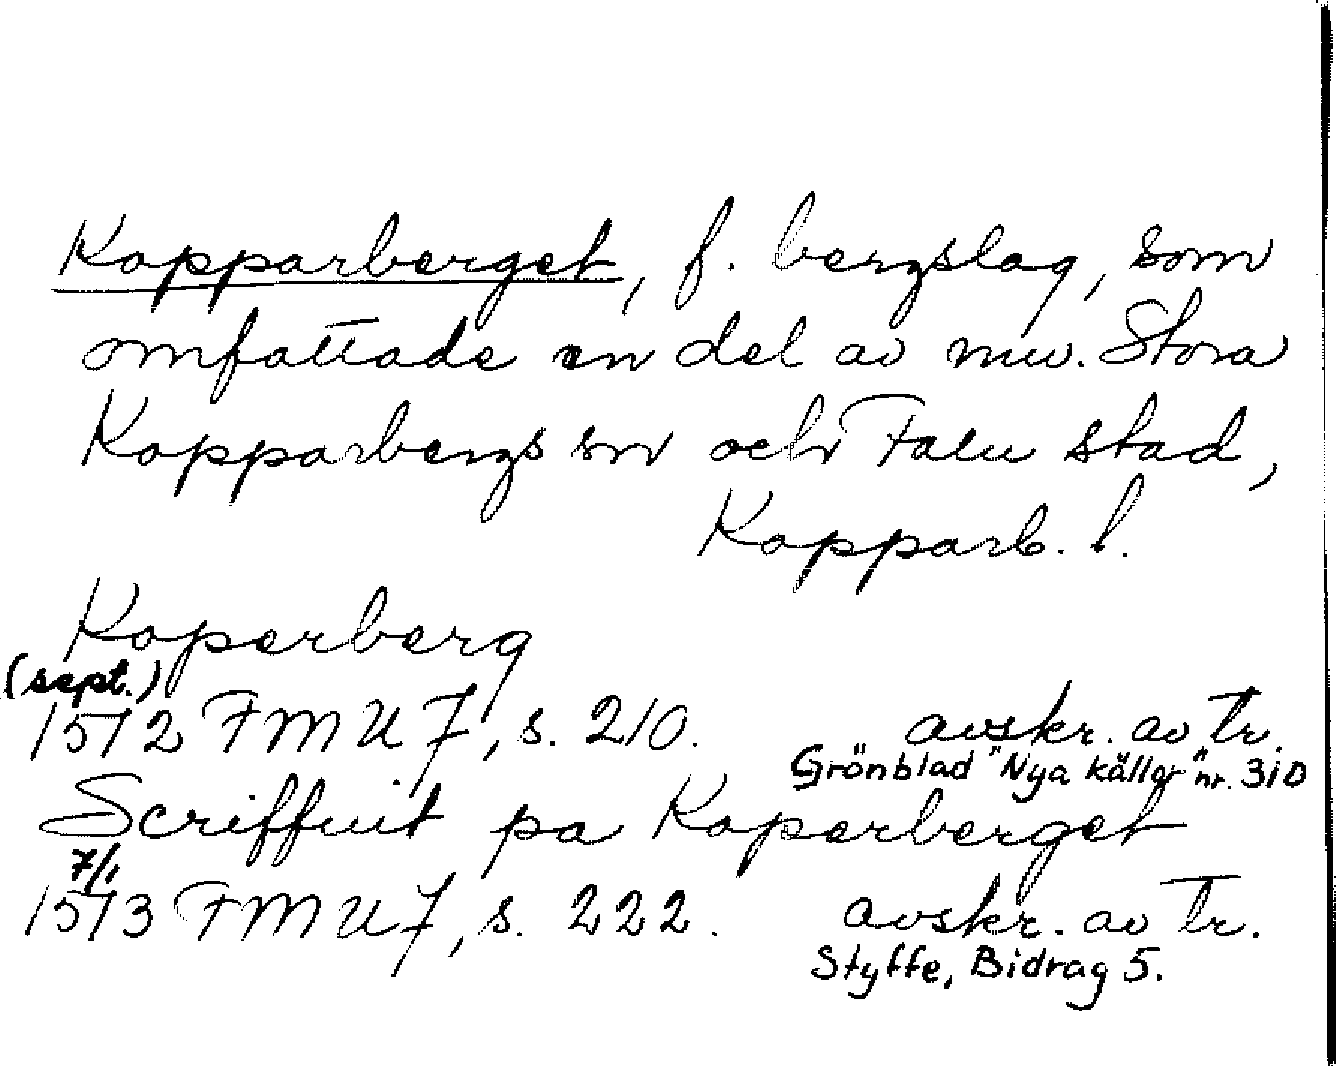 Kopparberget, f. bergslag, som
omfattade en del av nuv. Stora
Kopparbergs sn och Falu stad,
Kopparb. l.
Koperberg
(sept.)
1512 FMU 7, s. 210. avskr. av tr.
Grönblad "Nya källor" nr. 310
Scriffuit pa Koperberget
7/1
1513 FMU 7, s. 222. avskr. av tr.
Styffe, Bidrag 5.